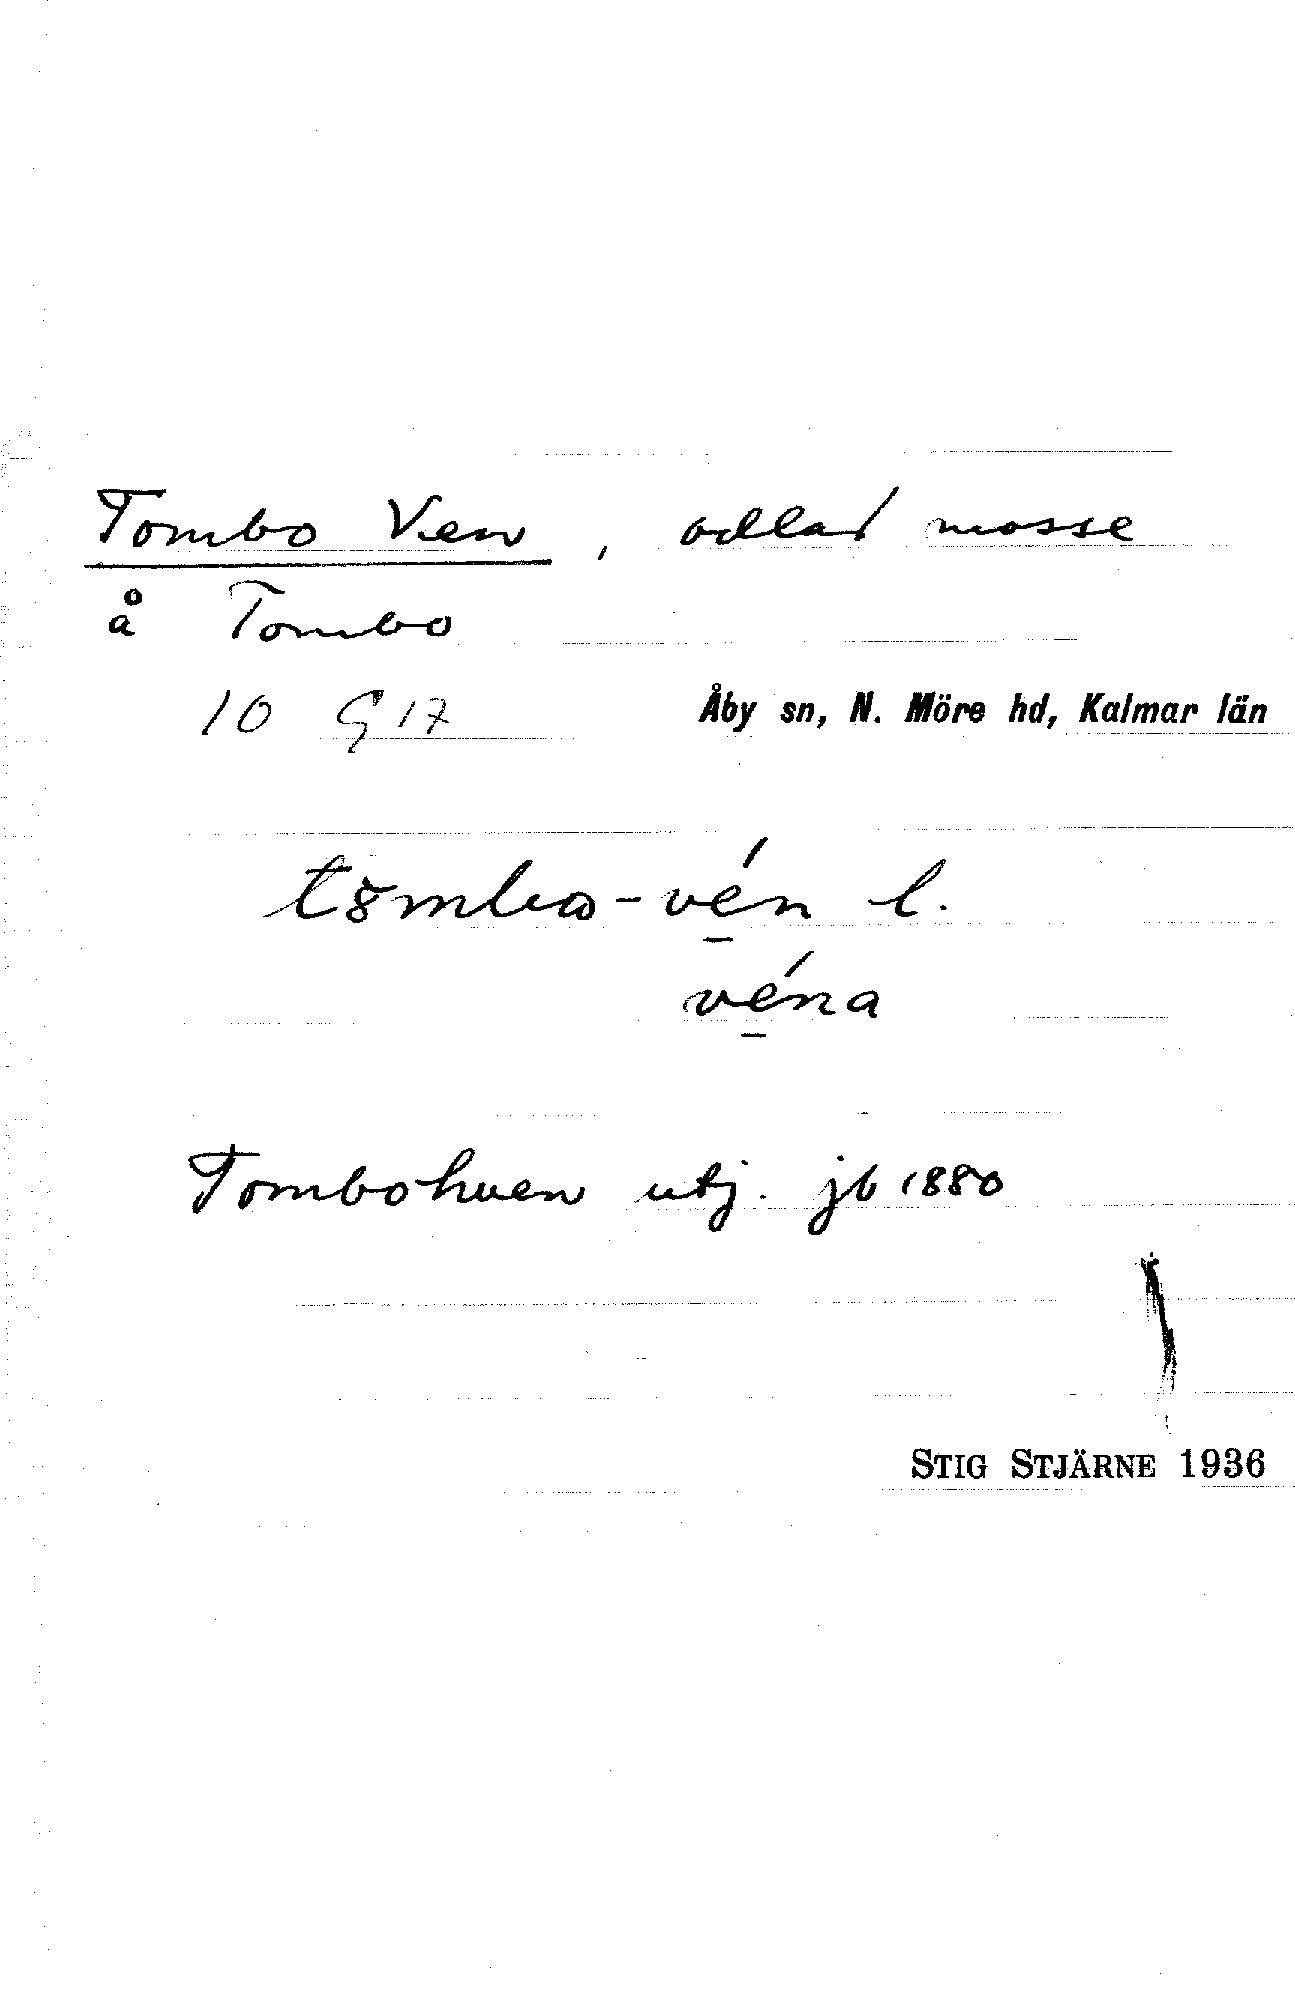 Tombo Ven, odlad mosse
å Tombo
10 G 17 Åby sn, N. Möre hd, Kalmar län
l.
véna
Tombohven utj. jb 1880
STIG STJÄRNE 1936